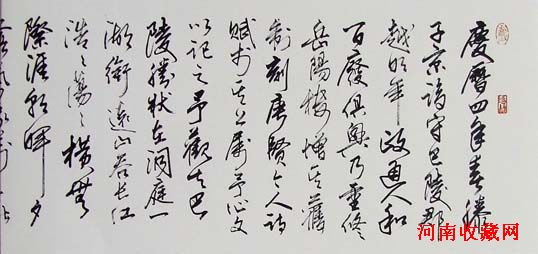 慶曆四年春滕
子京謫守巴陵郡
越明年政通人和
百廢俱興乃重修
岳陽樓增其舊
制刻唐賢今人詩
賦於其上屬予作文
以記之予觀夫巴
陵勝狀在洞庭一
湖銜遠山吞長江
浩々蕩々橫無
際涯朝暉夕
河南收藏网